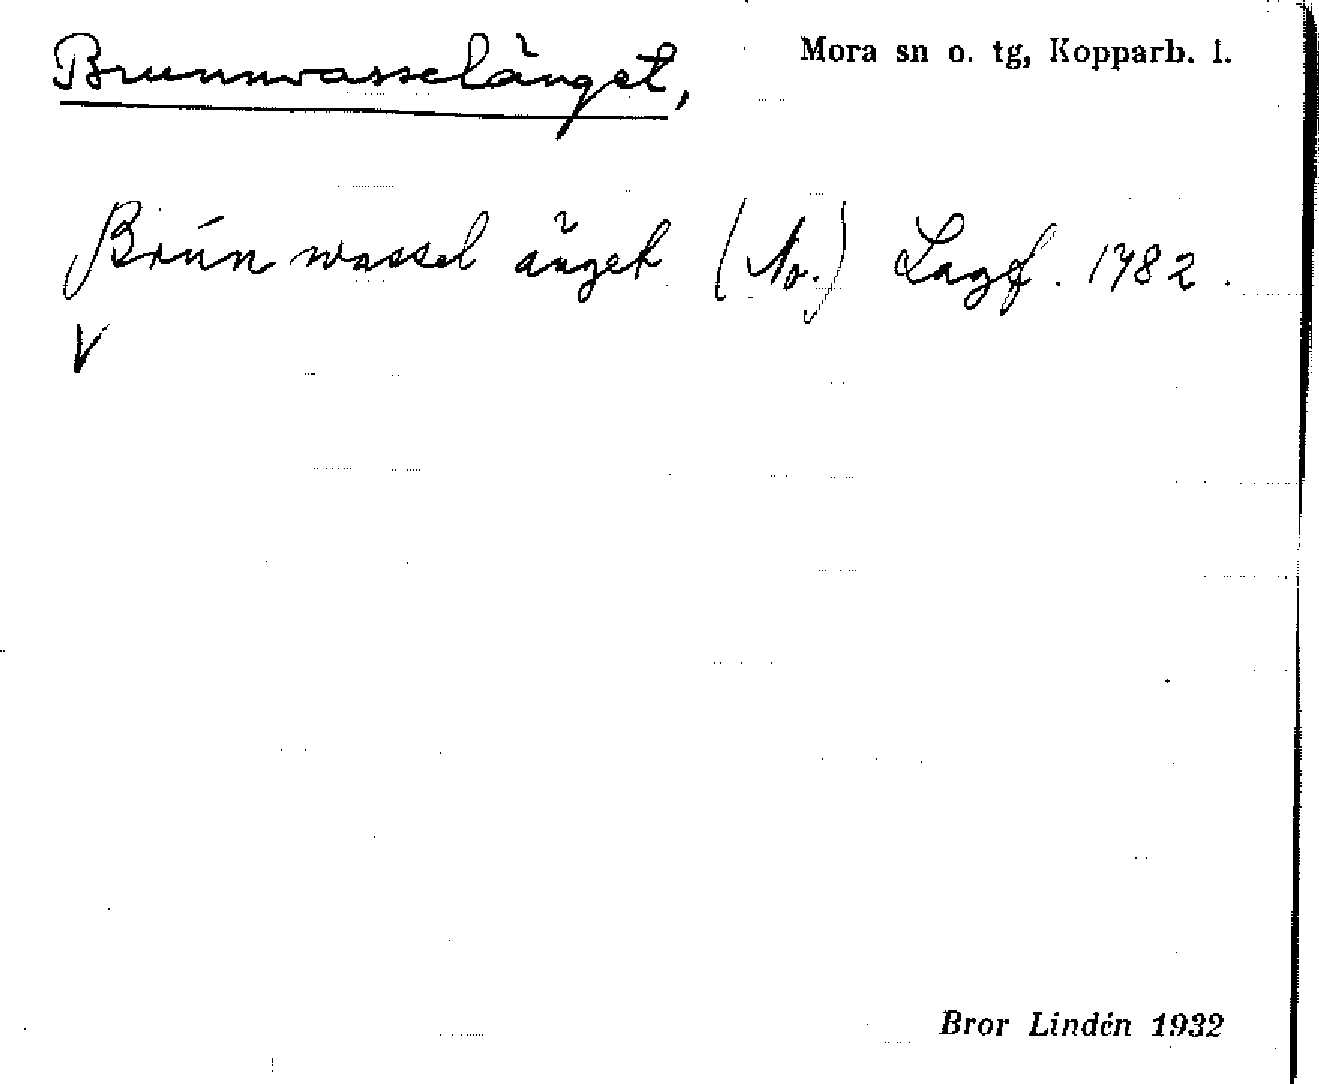 Brunnwasselänget,
Mora sn o. tg, Kopparb. l.
Brún wassel änget (No.) Lagf. 1782.
V
Bror Lindén 1932